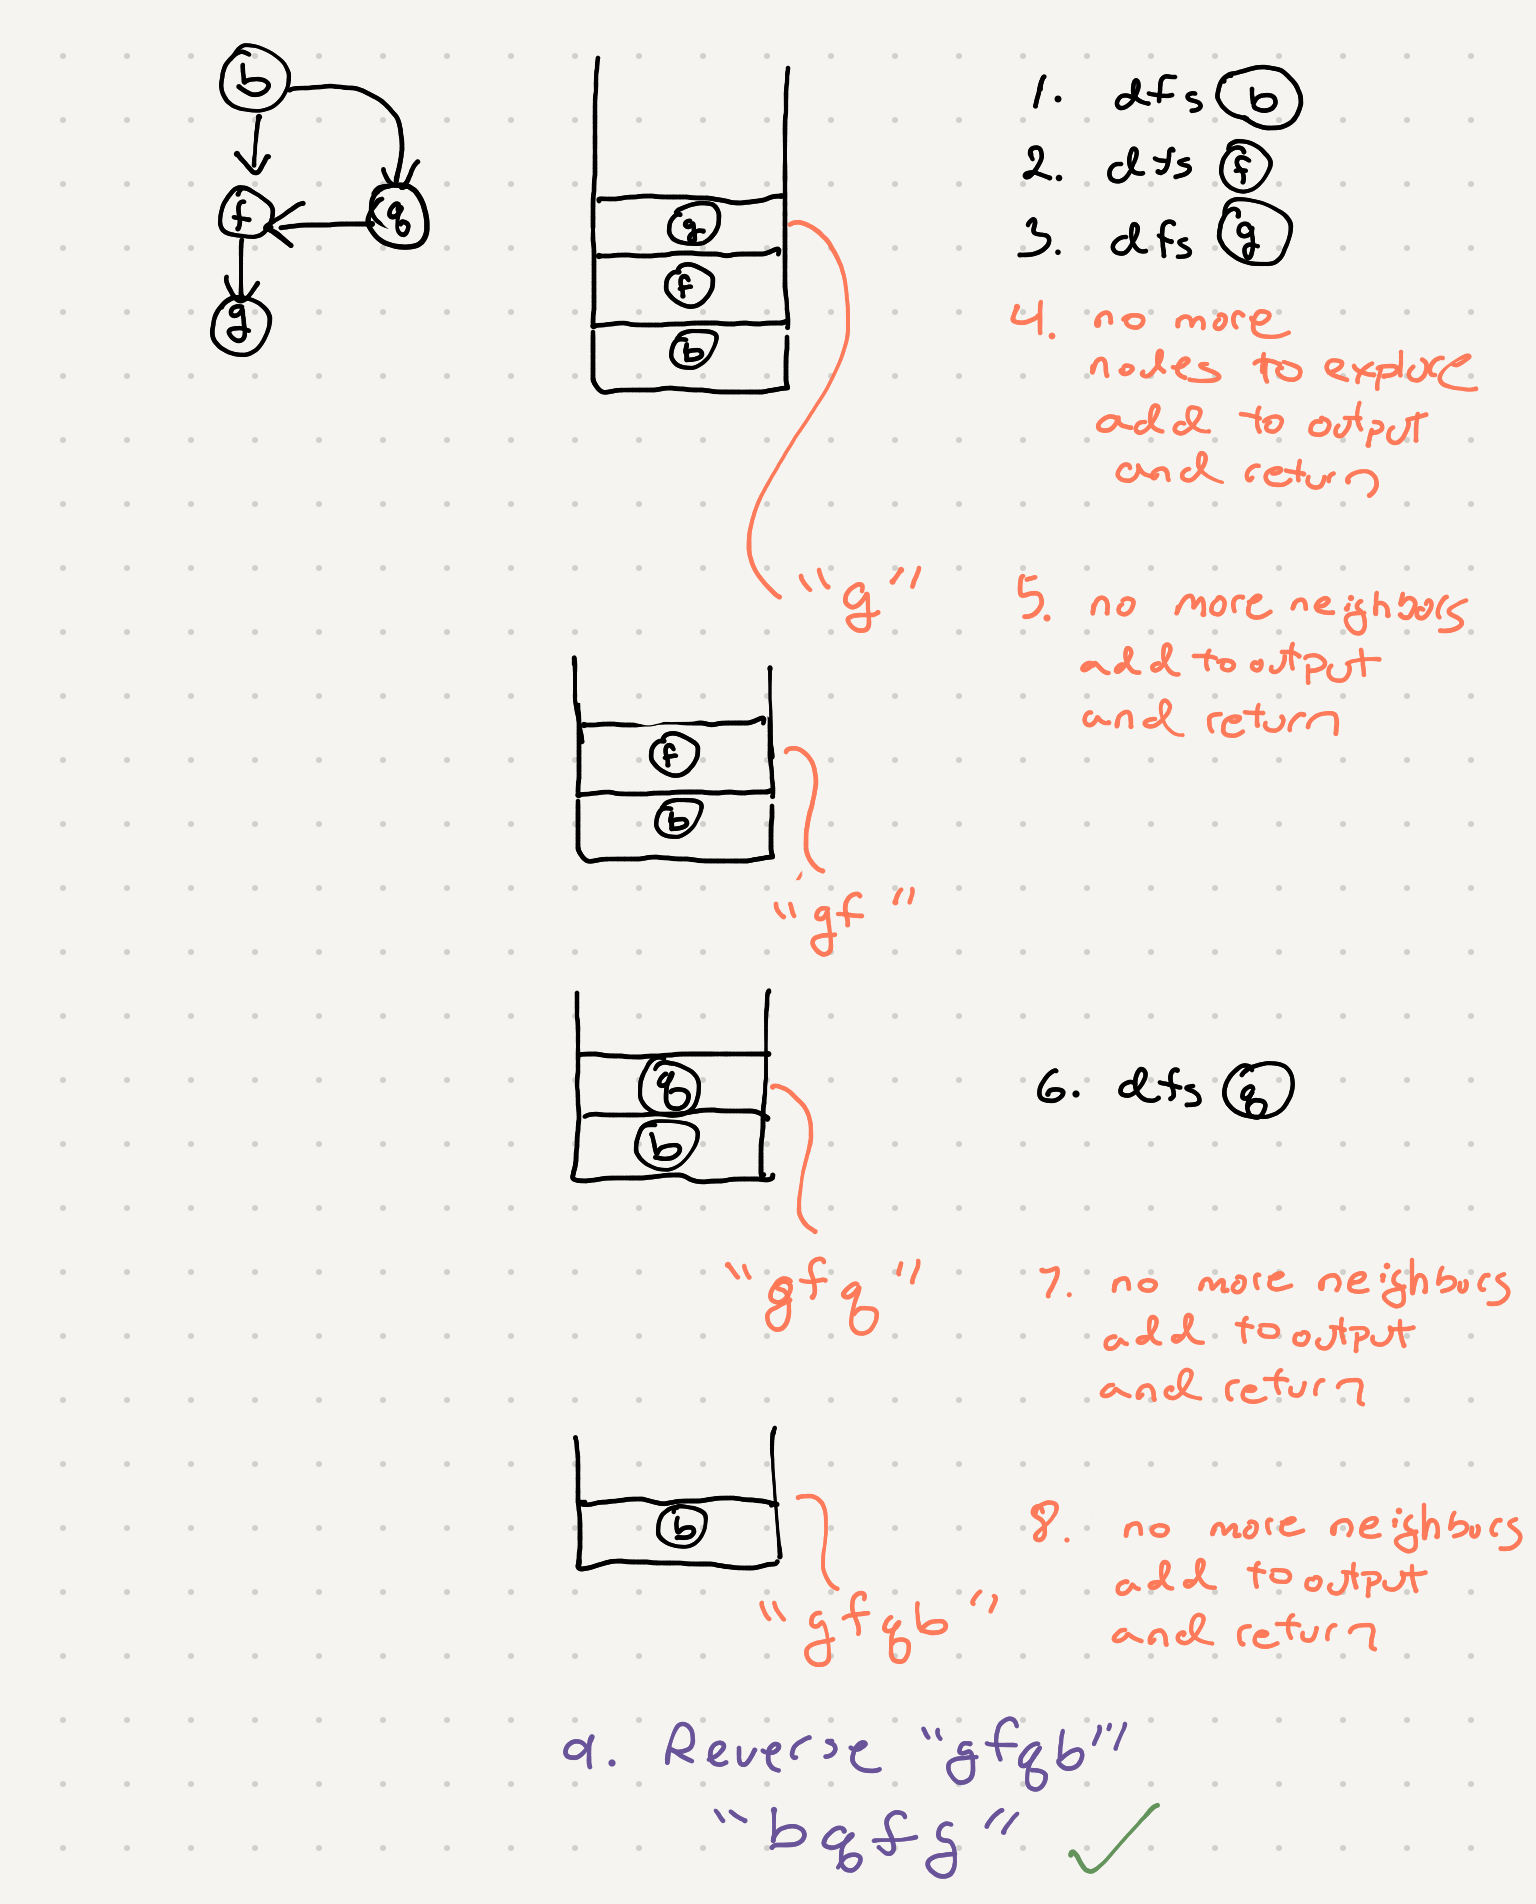 b
f
q
g
g
f
b
1. dfs b
2. dfs f
3. dfs g
4. no more
nodes to explore
add to output
and return
"g"
5. no more neighbors
add to output
and return
f
b
"gf"
q
b
6. dfs q
"gfq"
7. no more neighbors
add to output
and return
b
"gfqb"
8. no more neighbors
add to output
and return
9. Reverse "gfqb"
"bqfg"